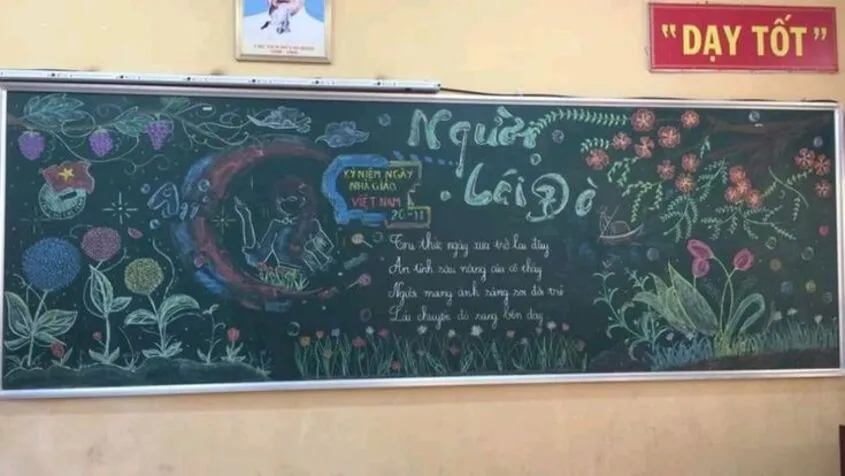 "DẠY TỐT"
Người
Lái Đò
KỶ NIỆM NGÀY
NHÀ GIÁO
VIỆT NAM
20-11
Tri thức ngày xưa trở lại đây
Ân tình sâu nặng của cô thầy
Người mang ánh sáng soi đời trẻ
Lái chuyến đò sang bến đậu